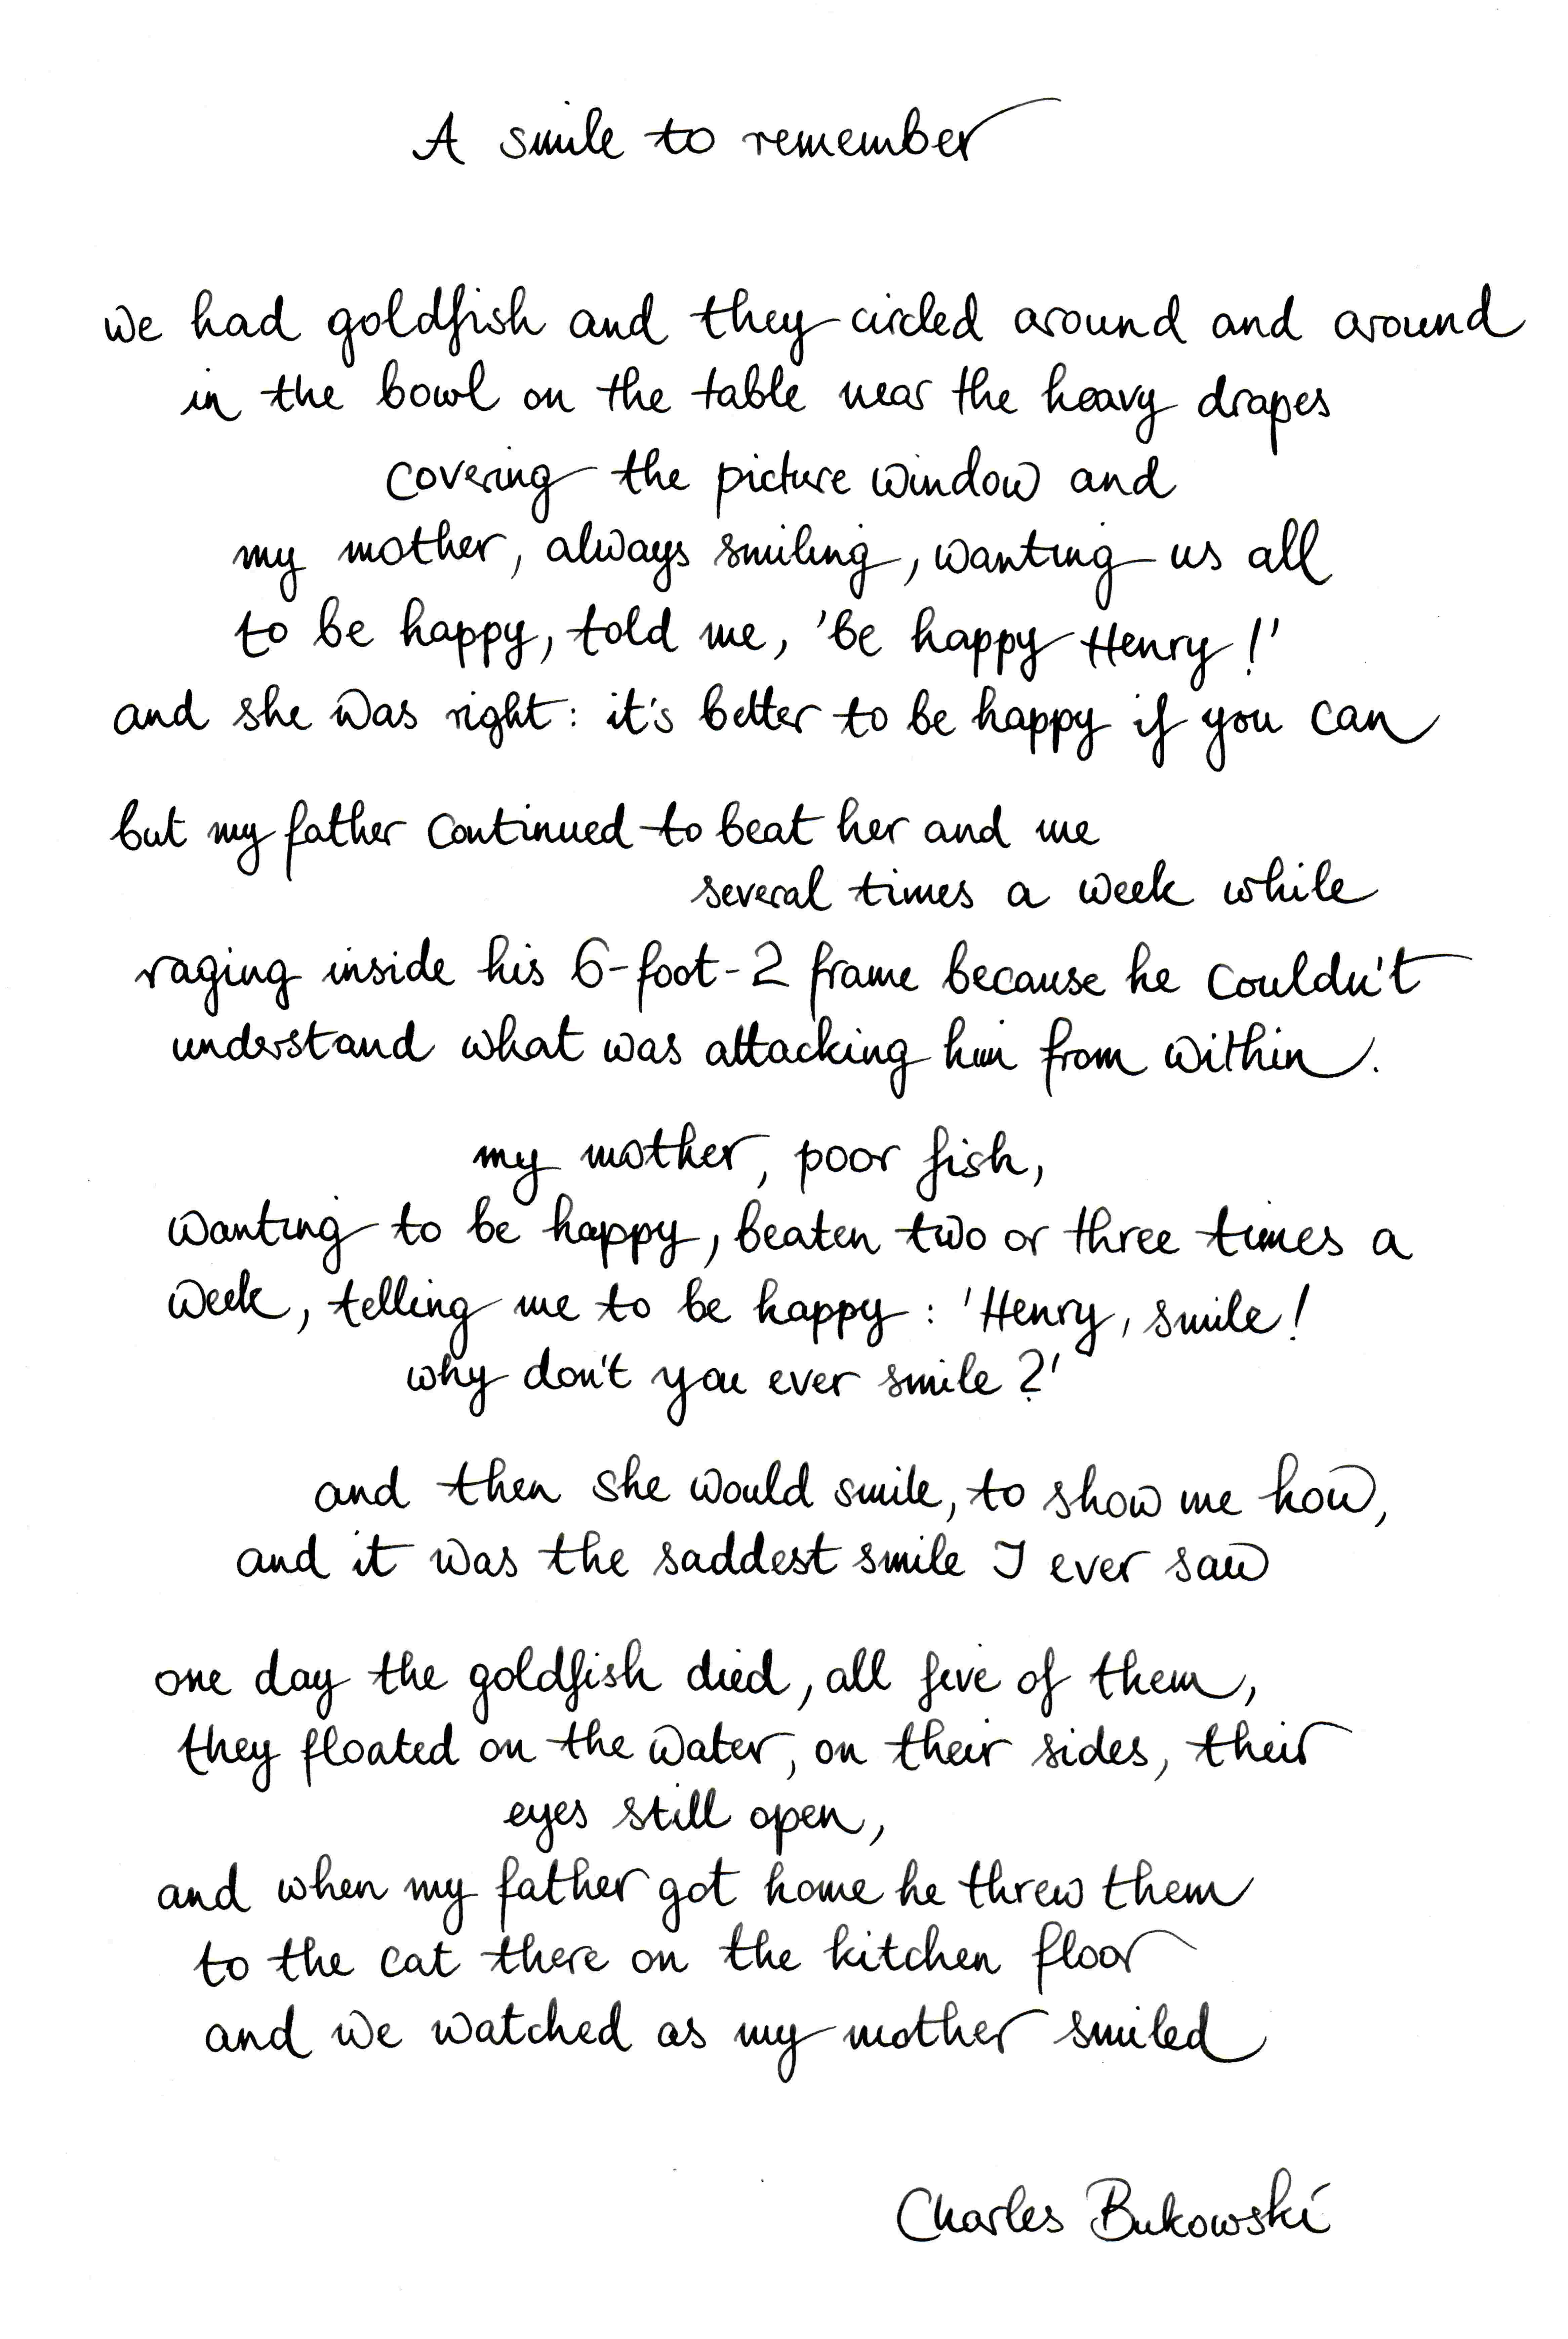 A smile to remember
we had goldfish and they circled around and around
in the bowl on the table near the heavy drapes
covering the picture window and
my mother, always smiling, wanting us all
to be happy, told me, 'be happy Henry!'
and she was right: it's better to be happy if you can
but my father continued to beat her and me
several times a week while
raging inside his 6-foot-2 frame because he couldn't
understand what was attacking him from within.
my mother, poor fish,
wanting to be happy, beaten two or three times a
week, telling me to be happy: 'Henry, smile!
why don't you ever smile?'
and then she would smile, to show me how,
and it was the saddest smile I ever saw
one day the goldfish died, all five of them,
they floated on the water, on their sides, their
eyes still open,
and when my father got home he threw them
to the cat there on the kitchen floor
and we watched as my mother smiled
Charles Bukowski